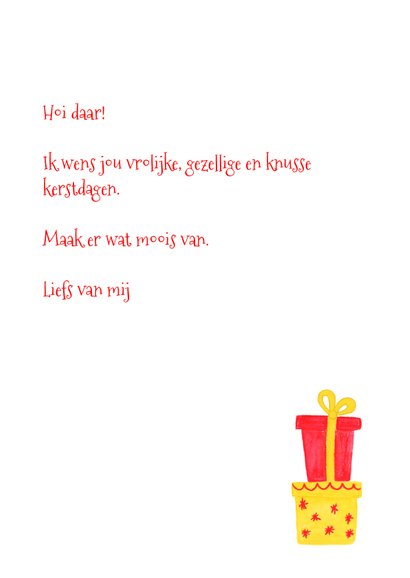 Hoi daar!
Ik wens jou vrolijke, gezellige en knusse
kerstdagen.
Maak er wat moois van.
Liefs van mij